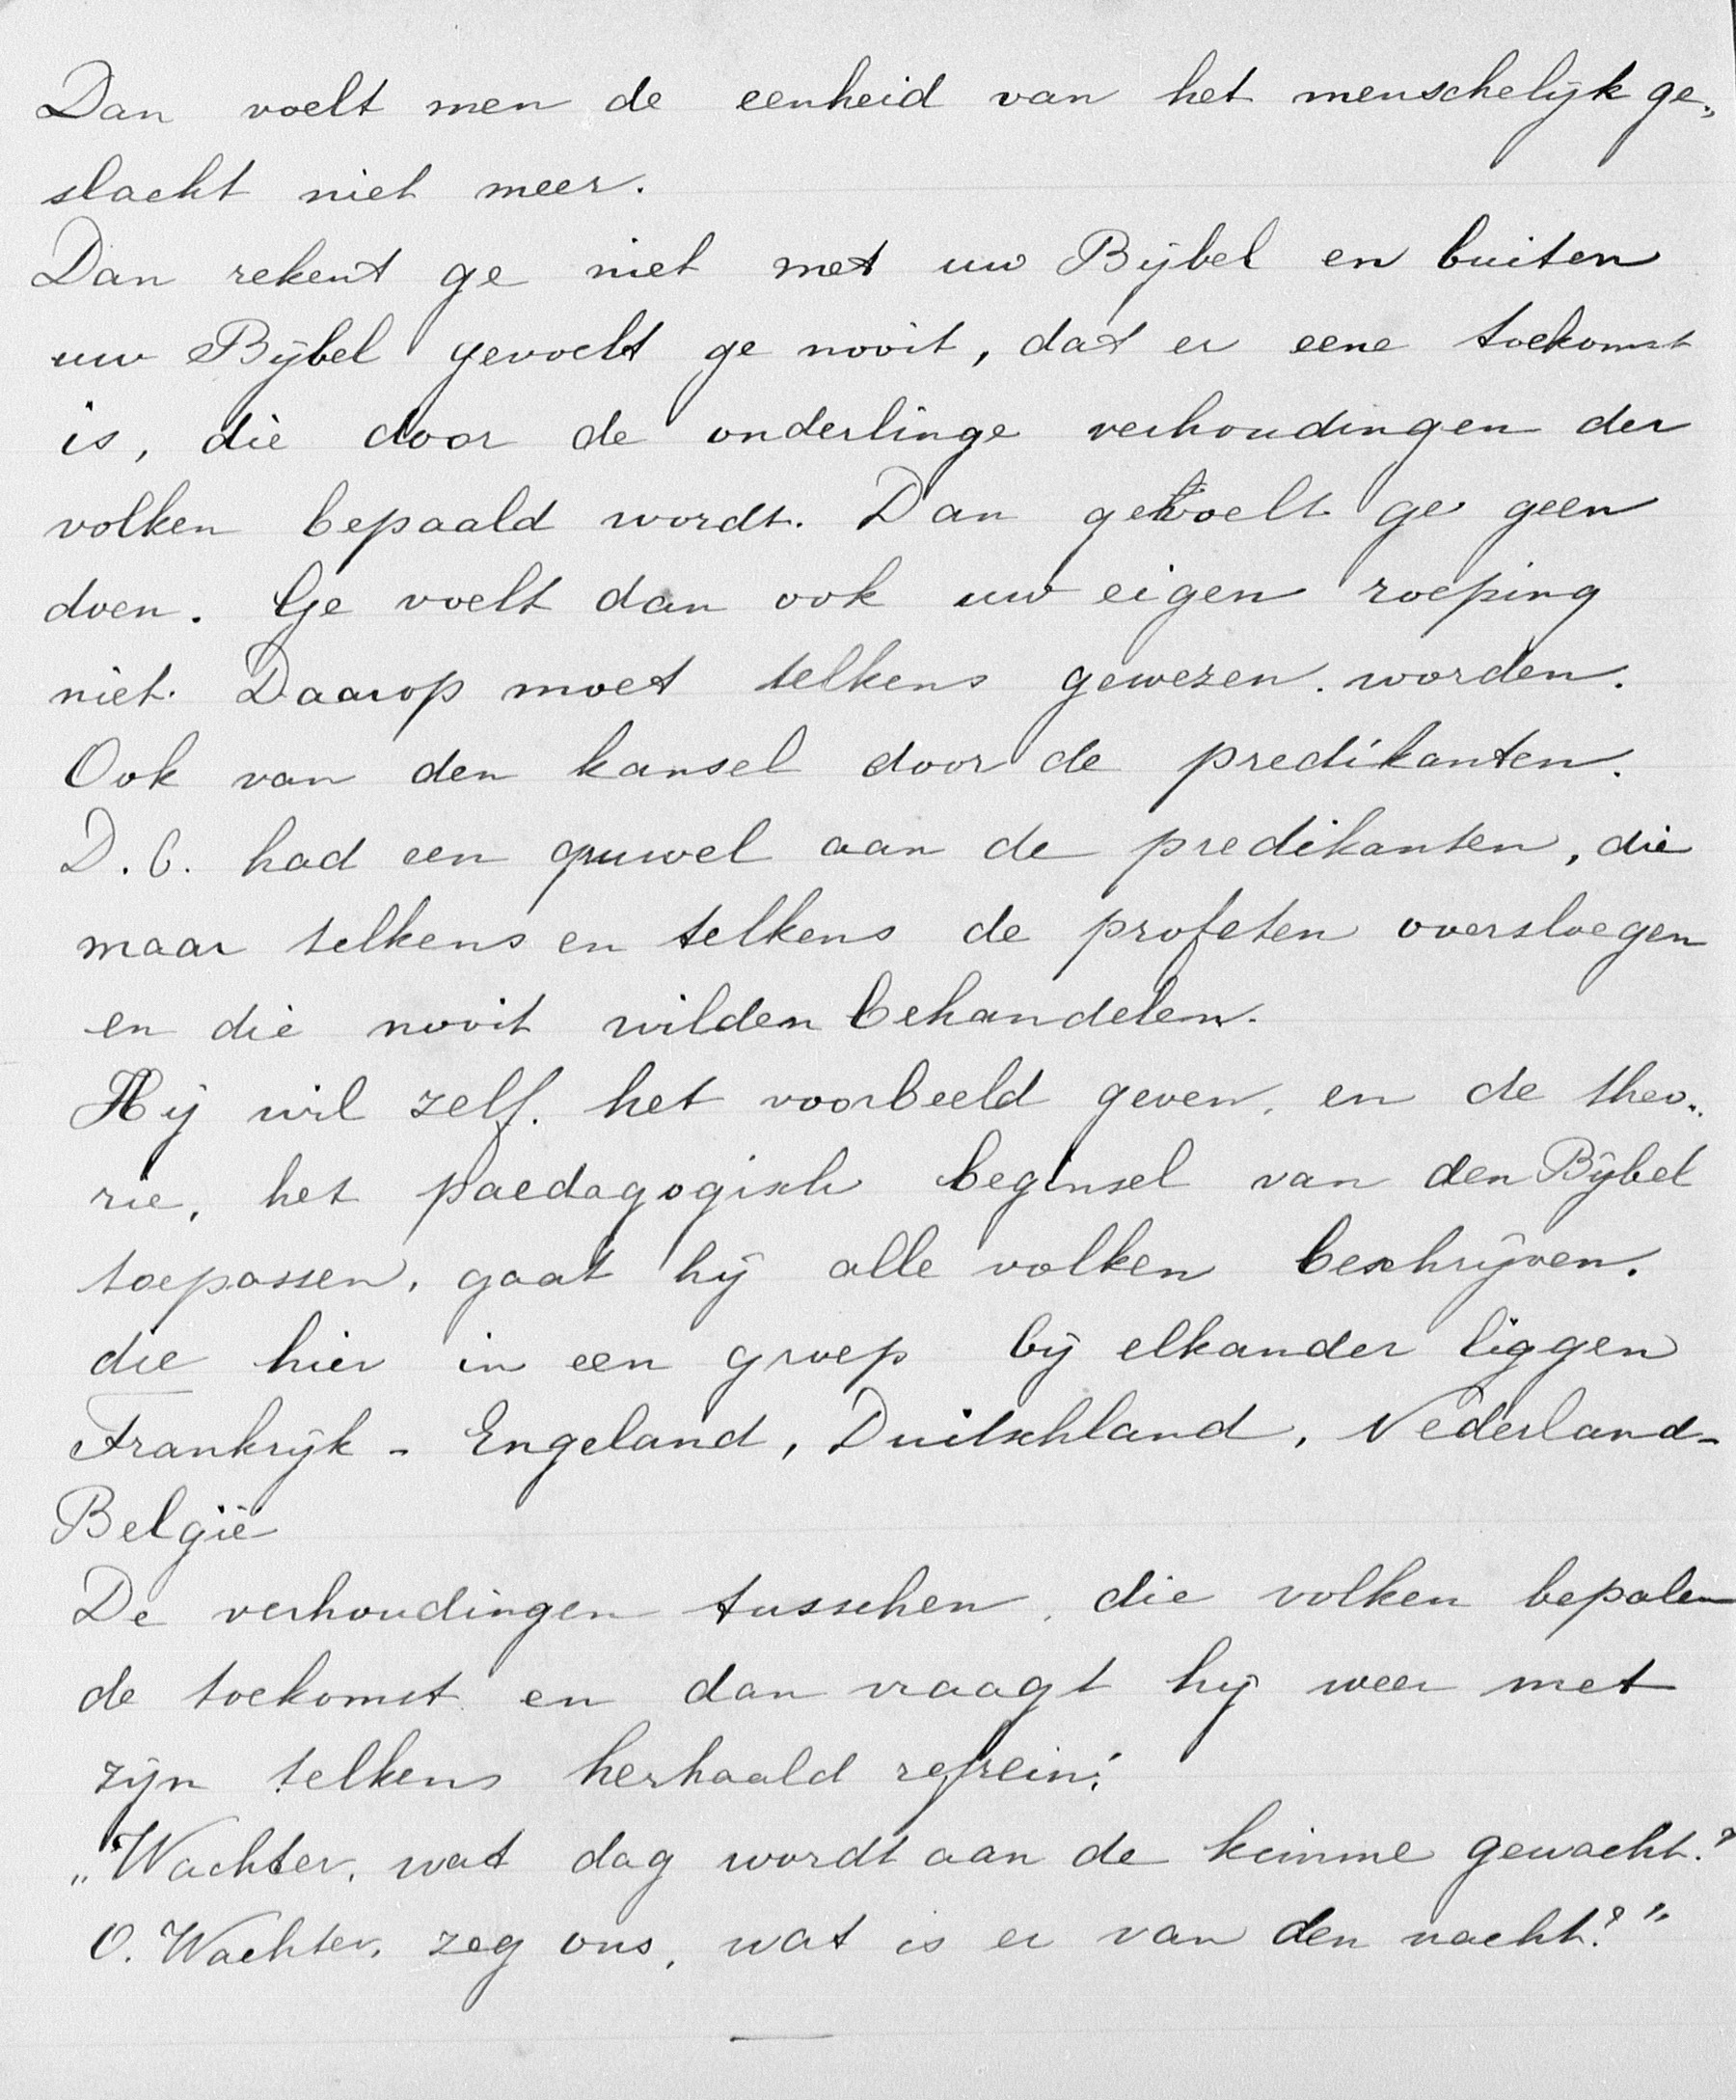 Dan voelt men de eenheid van het menschelijk ge„
slacht niet meer.
Dan rekent ge niet met uw Bijbel en buiten
uw Bijbel gevoelt ge nooit, dat er eene toekomst
is, die door de onderlinge verhoudingen der
volken bepaald wordt. Dan gevoelt ge geen
doen. Ge voelt dan ook uw eigen roeping
niet. Daarop moet telkens gewezen worden.
Ook van den kansel door de predikanten.
D.C. had een gruwel aan de predikanten, die
maar telkens en telkens de profeten oversloegen
en die nooit wilden behandelen.
Hij wil zelf het voorbeeld geven, en de theo„
rie, het paedagogisch beginsel van den Bijbel
toepassen, gaat hij alle volken beschrijven.
die hier in een groep bij elkander liggen
Frankrijk - Engeland, Duitschland, Nederland-
België
De verhoudingen tusschen die volken bepalen
de toekomst en dan vraagt hij weer met
zijn telkens herhaald refrein:
„Wachter, wat dag wordt aan de kimme gewacht?
O. Wachter, zeg ons, wat is er van den nacht?"